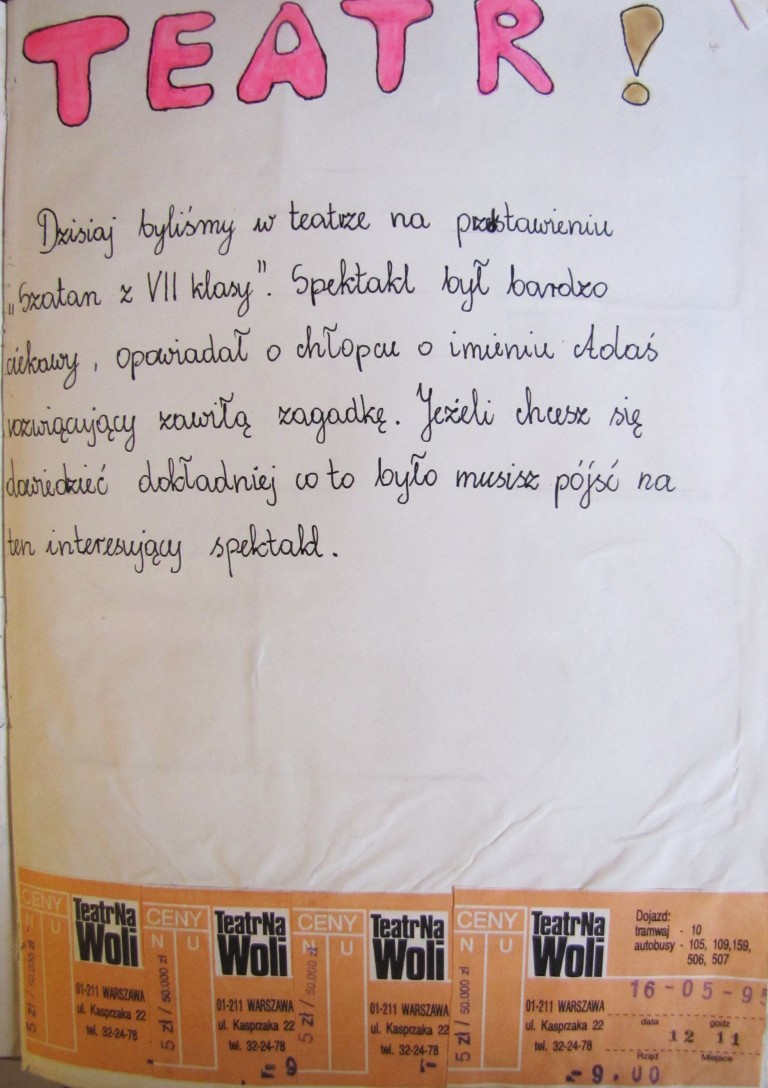 TEATR!
Dzisiaj byliśmy w teatrze na przedstawieniu
„Szatan z VII klasy". Spektakl był bardzo
ciekawy, opowiadał o chłopcu o imieniu Adaś
rozwiącujący zawiłą zagadkę. Jeżeli chcesz się
dowiedzieć dokładniej co to było musisz pójść na
ten interesujący spektakl.
CENY
N U
5 zł / 50.000 zł
Teatr Na
Woli
01-211 WARSZAWA
ul. Kasprzaka 22
tel. 32-24-78
- 9
CENY
N U
5 zł / 50.000 zł
Teatr Na
Woli
01-211 WARSZAWA
ul. Kasprzaka 22
tel. 32-24-78
CENY
N U
5 zł / 50.000 zł
Teatr Na
Woli
01-211 WARSZAWA
ul. Kasprzaka 22
tel. 32-24-78
CENY
N U
5 zł / 50.000 zł
Teatr Na
Woli
01-211 WARSZAWA
ul. Kasprzaka 22
tel. 32-24-78
- 9.00
Dojazd:
tramwaj - 10
autobusy - 105, 109,159,
506, 507
16-05-9
data godz
12 11
Rząd Miejsce